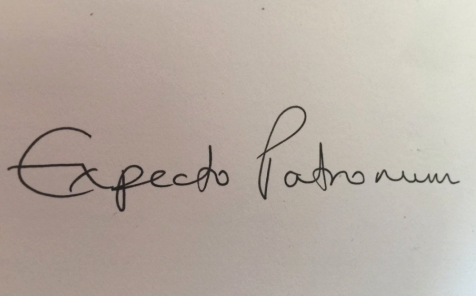 Expecto Patronum